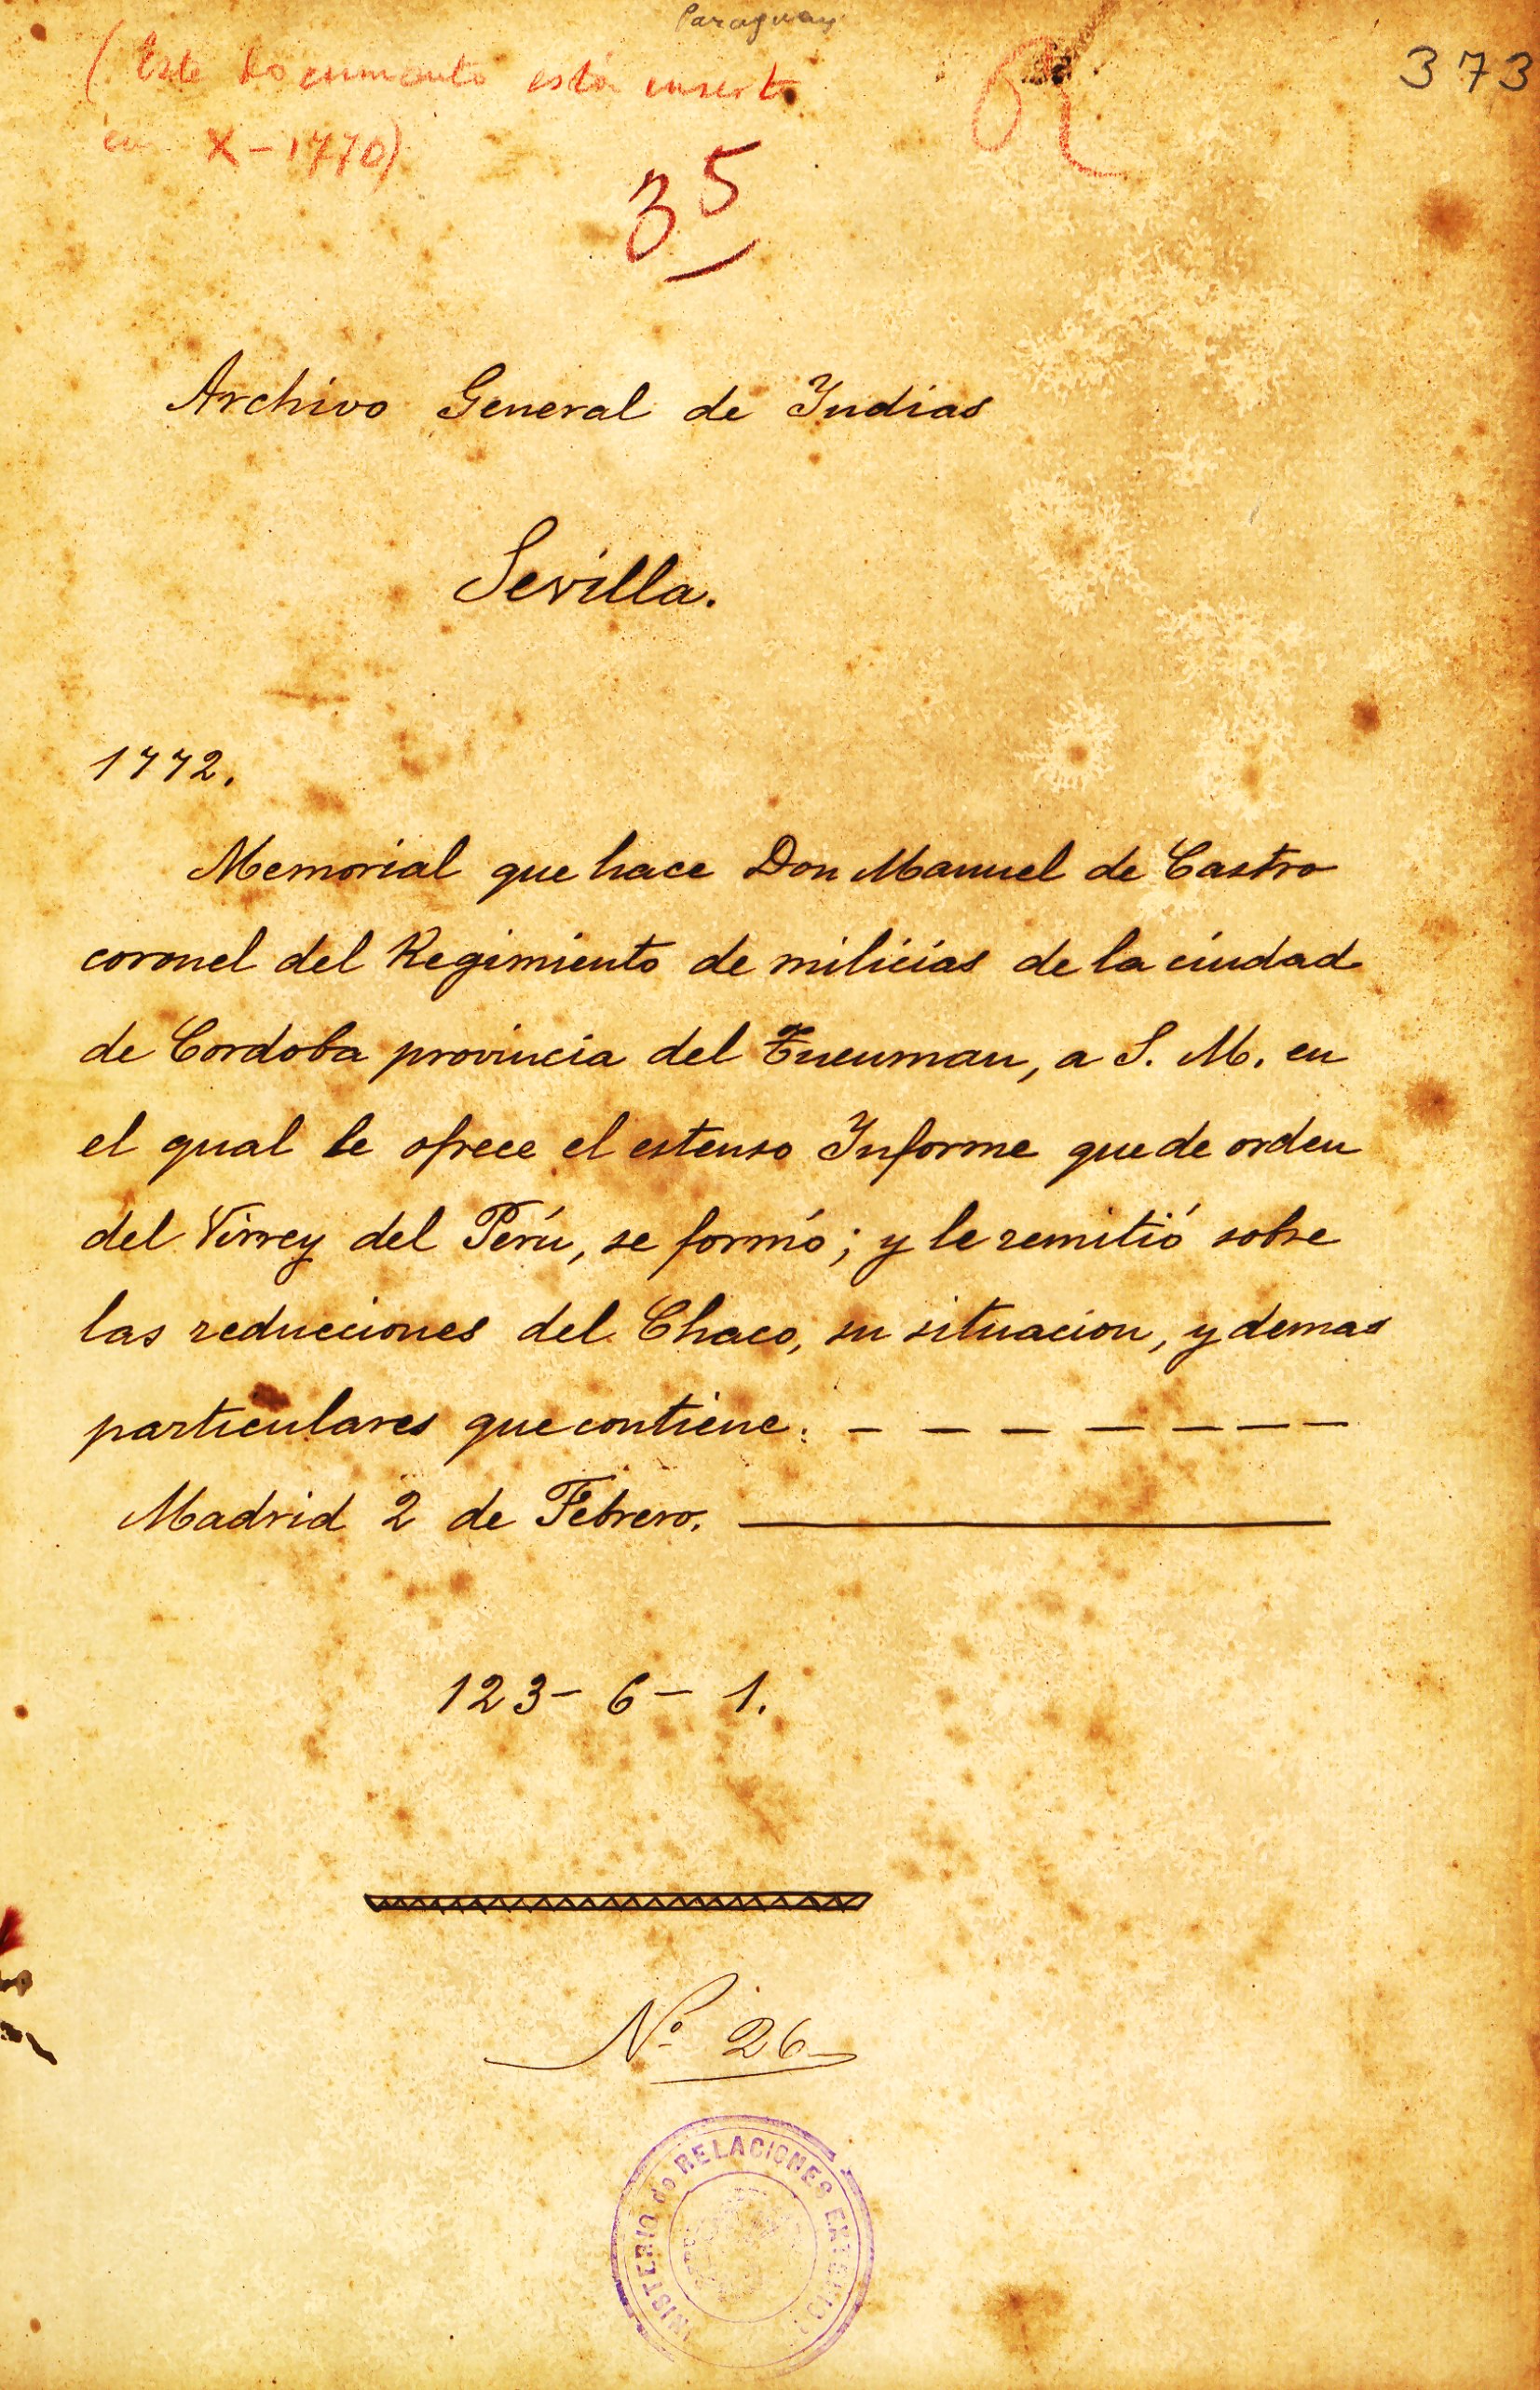 Paraguay
373
(Este Documento está inserto
en X-1770)
35
Archivo General de Indias
Sevilla.
1772.
Memorial que hace Don Manuel de Castro
coronel del Regimiento de milicias de la ciudad
de Cordoba provincia del Tucuman, a S. M. en
el qual le ofrece el estenso Informe que de orden
del Virrey del Perú, se formó; y le remitió sobre
las reducciones del Chaco, su situacion, y demas
particulares que contiene. - - - - - - -
Madrid 2 de Febrero.
123-6-1.
Nº 26
MINISTERIO de RELACIONES EXTERIORES